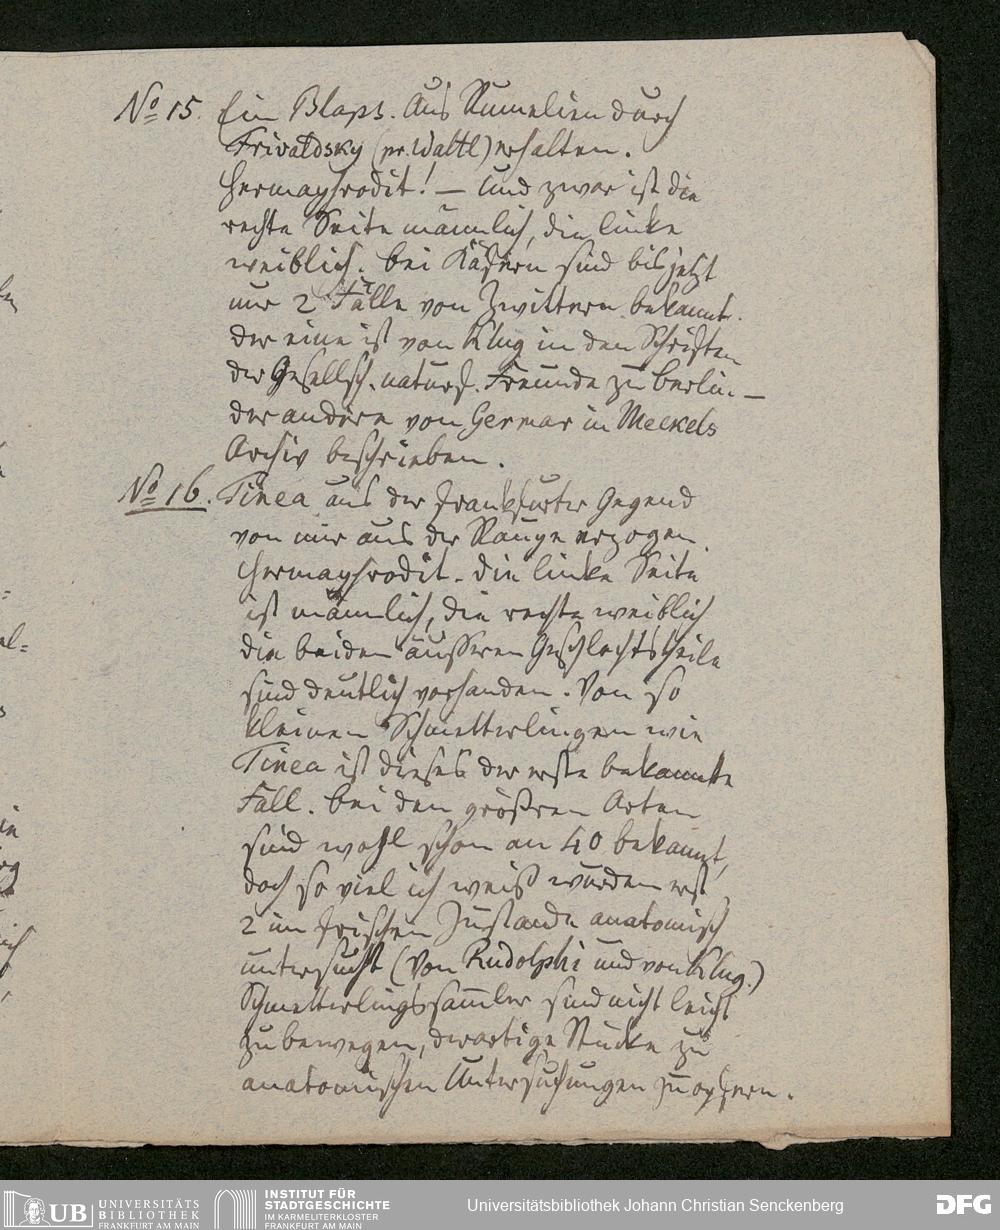 No 15. Ein Blaps. Aus Rumelien durch
Frivaldsky (pr. Waltl) erhalten.
Hermaphrodit! — Und zwar ist die
rechte Seite männlich, die linke
weiblich. bei Käfern sind bis jetzt
nur 2 Fälle von Zwittern bekannt.
der eine ist von Klug in den Schriften
der Gesellsch. naturf. Freunde zu Berlin. —
der andere von Germar in Meckels
Archiv beschrieben.
No 16. Tinea aus der Frankfurter Gegend
von mir aus der Raupe erzogen.
Hermaphrodit. die linke Seite
ist männlich, die rechte weiblich
die beiden äusseren Geschlechtstheile
sind deutlich vorhanden. Von so
kleinen Schmetterlingen wie
Tinea ist dieses der erste bekannte
Fall. bei den größren Arten
sind wohl schon an 40 bekannt,
doch so viel ich weiß wurden erst
2 im frischen Zustande anatomisch
untersucht (von Rudolphi und von Klug.)
Schmetterlingssamler sind nicht leicht
zu bewegen, derartige Stücke zu
anatomischen Untersuchungen zu opfern.
UB UNIVERSITÄTS
BIBLIOTHEK
FRANKFURT AM MAIN
INSTITUT FÜR
STADTGESCHICHTE
IM KARMELITERKLOSTER
FRANKFURT AM MAIN
Universitätsbibliothek Johann Christian Senckenberg
DFG